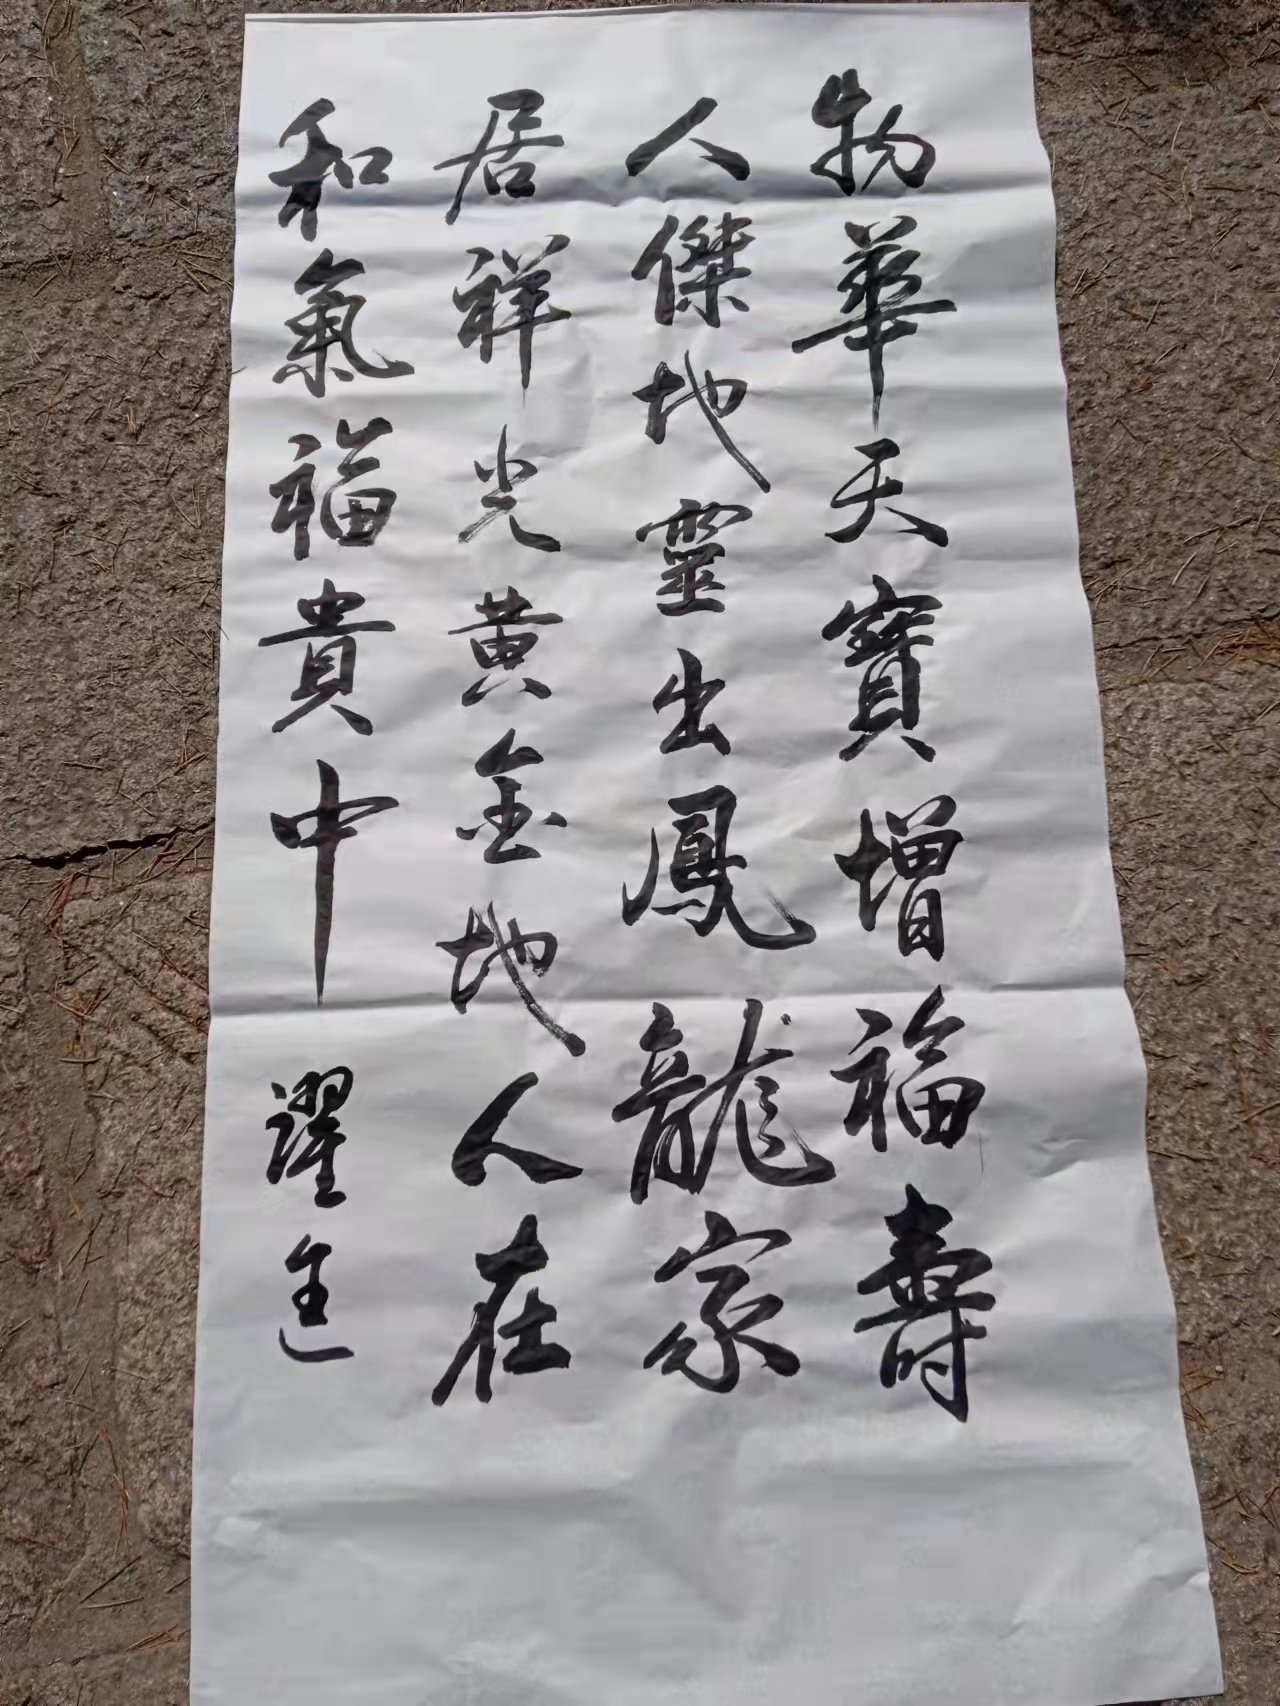 物華天寶增福壽
人傑地靈出鳳龍家
居祥光黄金地人在
和氣福貴中